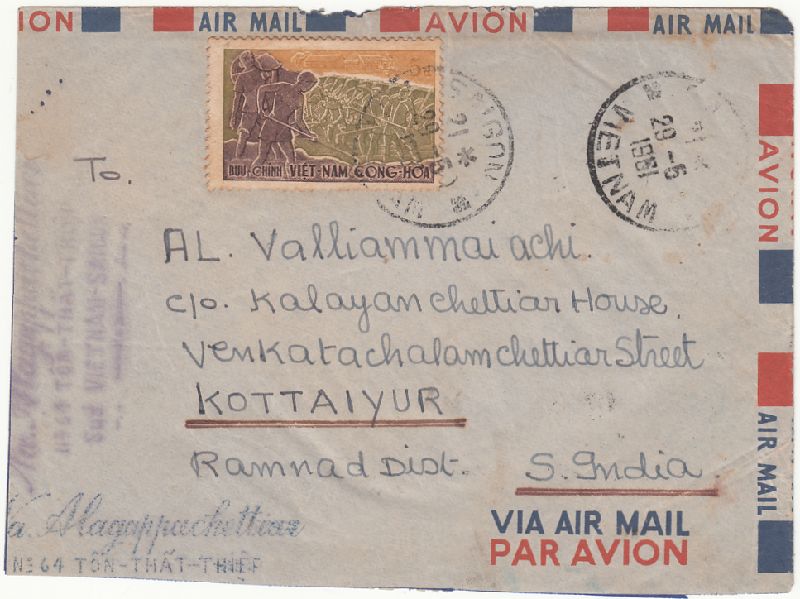 ION AIR MAIL AVION AIR MAIL
BƯU-CHÍNH VIỆT-NAM CỘNG-HÒA
21 *
29 -5
1961
VIETNAM
AVION
To.
AL. Valliammai achi.
c/o. Kalayan chettiar House,
Venkatachalamchettiar Street
KOTTAIYUR
Ramnad Dist. S. India
AIR MAIL
VIA AIR MAIL
PAR AVION
Alagappachettiar
No 64 TÔN-THẤT-THIỆP
TÔN-THẤT